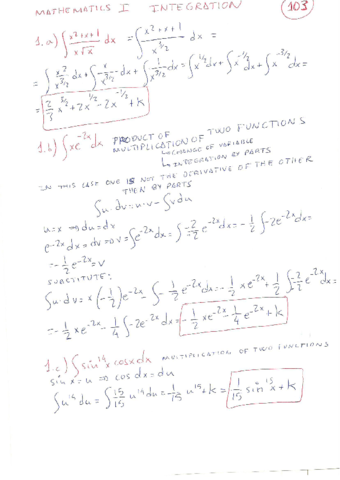 MATHEMATICS I INTEGRATION 103
1.a) ∫ (x²+x+1)/(x√x) dx = ∫ (x²+x+1)/x^(3/2) dx =
= ∫ x²/x^(3/2) dx + ∫ x/x^(3/2) dx + ∫ 1/x^(3/2) dx = ∫x^(1/2) dx + ∫x^(-1/2) dx + ∫x^(-3/2) dx =
= 2/3 x^(3/2) + 2x^(1/2) - 2x^(-1/2) + K
1.b) ∫xe^(-2x) dx PRODUCT OF
MULTIPLICATION OF TWO FUNCTIONS
↳CHANGE OF VARIABLE
↳INTEGRATION BY PARTS
IN THIS CASE ONE IS NOT THE DERIVATIVE OF THE OTHER
THEN BY PARTS
∫u·dv = u·v - ∫v du
u=x ⇒ du=dx
e^(-2x) dx = dv ⇒ v = ∫e^(-2x) dx = ∫ -2/-2 e^(-2x) dx = -1/2 ∫-2e^(-2x) dx =
= -1/2 e^(-2x) = v
SUBSTITUTE:
∫u·dv = x(-1/2)e^(-2x) - ∫-1/2 e^(-2x) dx = -1/2 xe^(-2x) + 1/2 ∫ -2/-2 e^(-2x) dx =
= -1/2 xe^(-2x) - 1/4 ∫-2e^(-2x) dx = -1/2 xe^(-2x) - 1/4 e^(-2x) + K
1.c) ∫sin¹⁴x cosx dx MULTIPLICATION OF TWO FUNCTIONS
sin x = u ⇒ cos dx = du
∫u¹⁴ du = ∫ 15/15 u¹⁴ du = 1/15 u¹⁵ + K = 1/15 sin¹⁵x + K